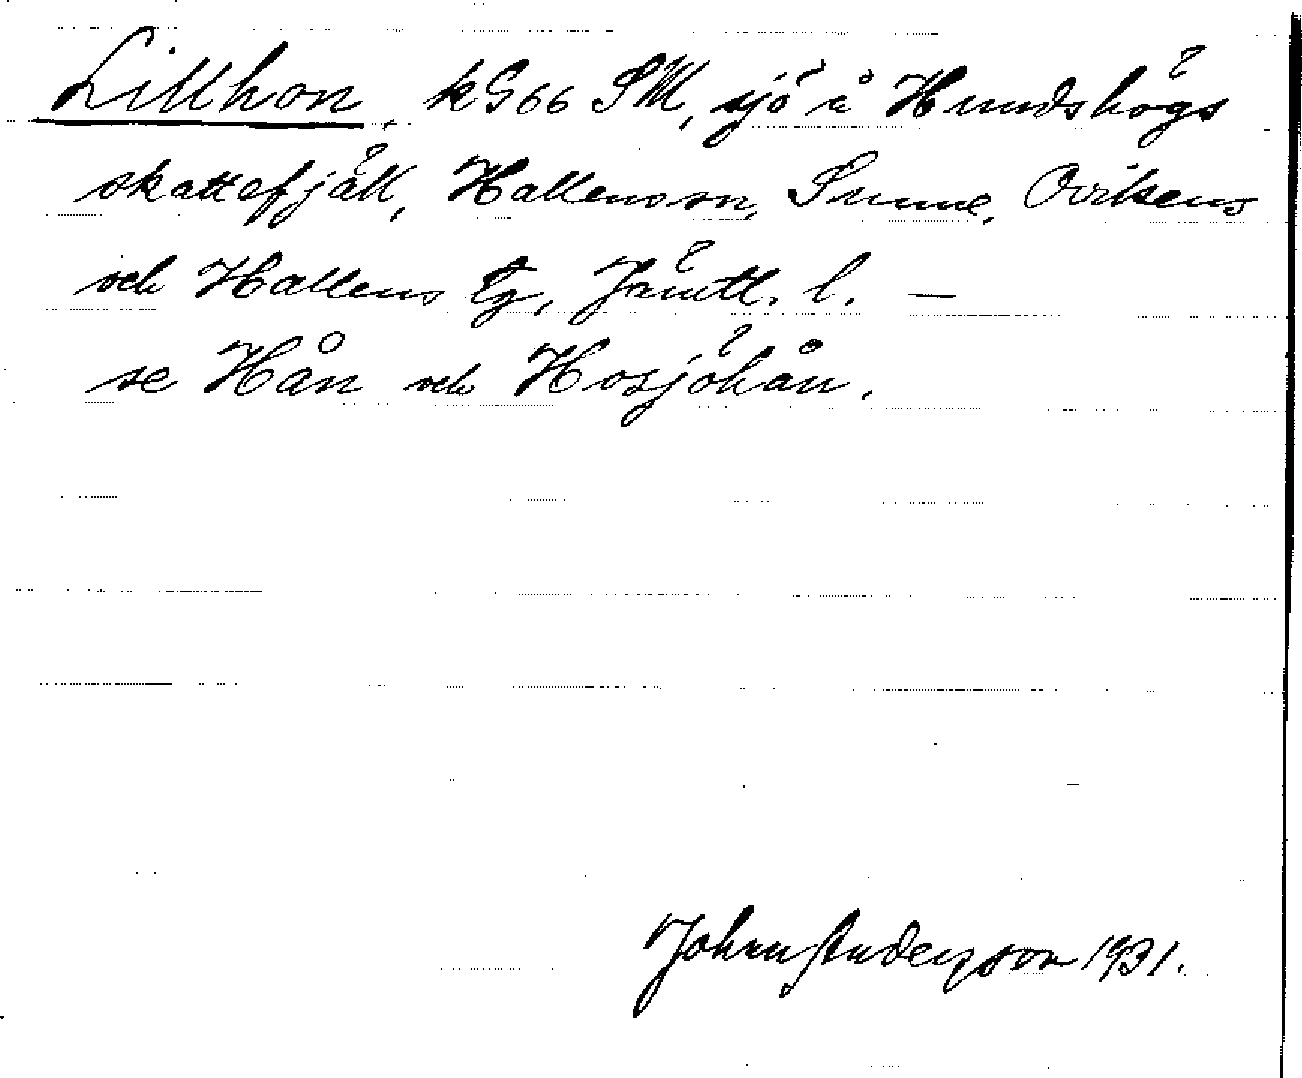 Lillhon, k G66 SM, sjö å Hundshögs
skattefjäll, Hallens sn, Sunne, Ovikens
och Hallens tg, Jämtl. l. —
se Hån och Hosjöhån.
John Anderzson 1931.